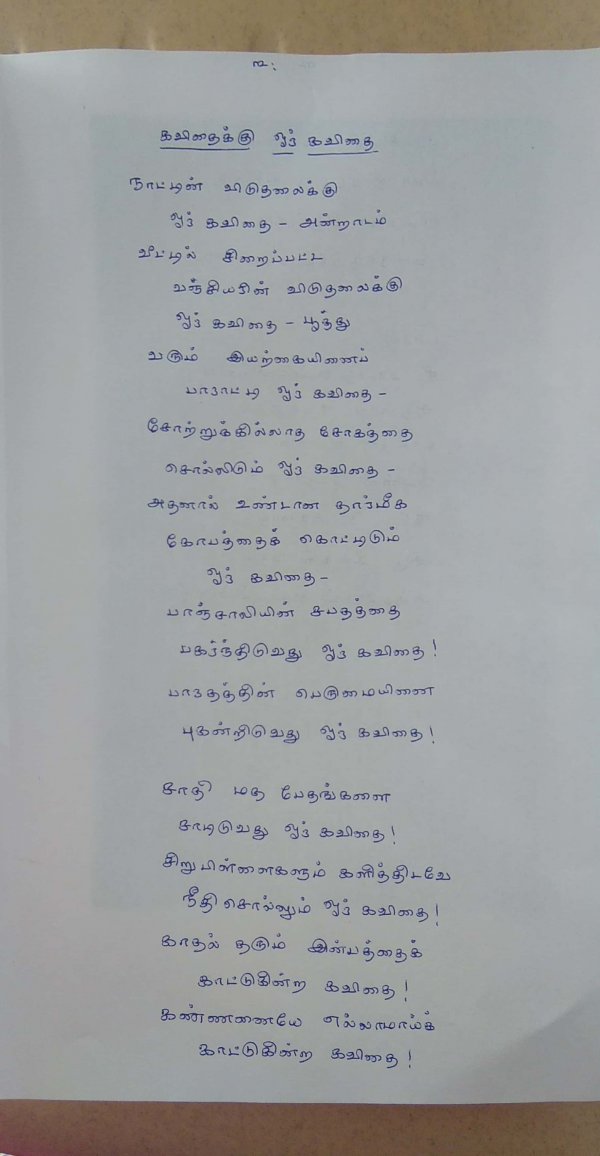 கவிதைக்கு ஓர் கவிதை
நாட்டின் விடுதலைக்கு
ஓர் கவிதை - அன்றாடம்
வீட்டில் சிறைப்பட்ட
வஞ்சியரின் விடுதலைக்கு
ஓர் கவிதை - பூத்து
வரும் இயற்கையினைப்
பாராட்டி ஓர் கவிதை -
சோற்றுக்கில்லாத சோகத்தை
சொல்லிடும் ஓர் கவிதை -
அதனால் உண்டான தார்மீக
கோபத்தைக் கொட்டிடும்
ஓர் கவிதை -
பாஞ்சாலியின் சபதத்தை
பகர்ந்திடுவது ஓர் கவிதை!
பாரதத்தின் பெருமையினை
புகன்றிடுவது ஓர் கவிதை!
சாதி மத பேதங்களை
சாடிடுவது ஓர் கவிதை!
சிறுபிள்ளைகளும் களித்திடவே
நீதி சொல்லும் ஓர் கவிதை!
காதல் தரும் இன்பத்தைக்
காட்டுகின்ற கவிதை!
கண்ணனையே எல்லாமாய்க்
காட்டுகின்ற கவிதை!